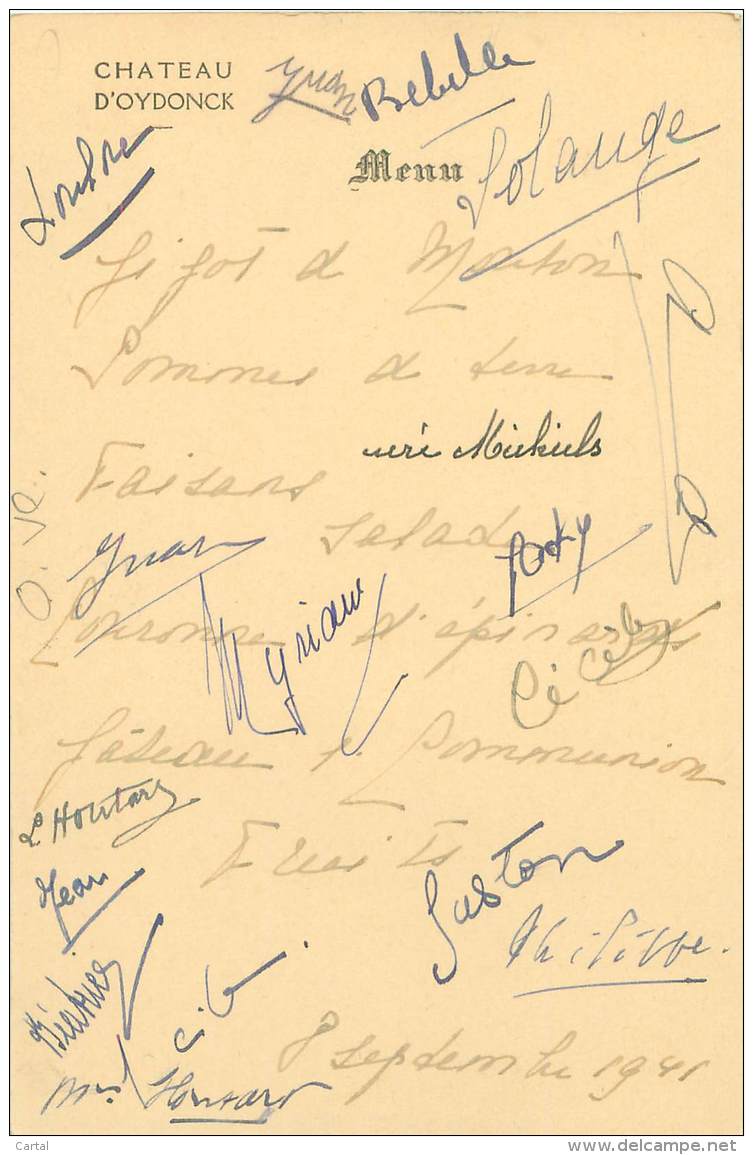 CHATEAU
D'OYDONCK
Yvan
Bebelle
Menu
Solange
Gigot d Mouton
Pommes d terre
Michiels
Faisans
Salade
Yvan
Couronne d'épinards
Myriam
Cécile
Gâteau d Communion
L. Houtart
Fruits
Jean
Gaston
Philippe.
8 septembre 1941
Houtart
Cartal
www.delcampe.net